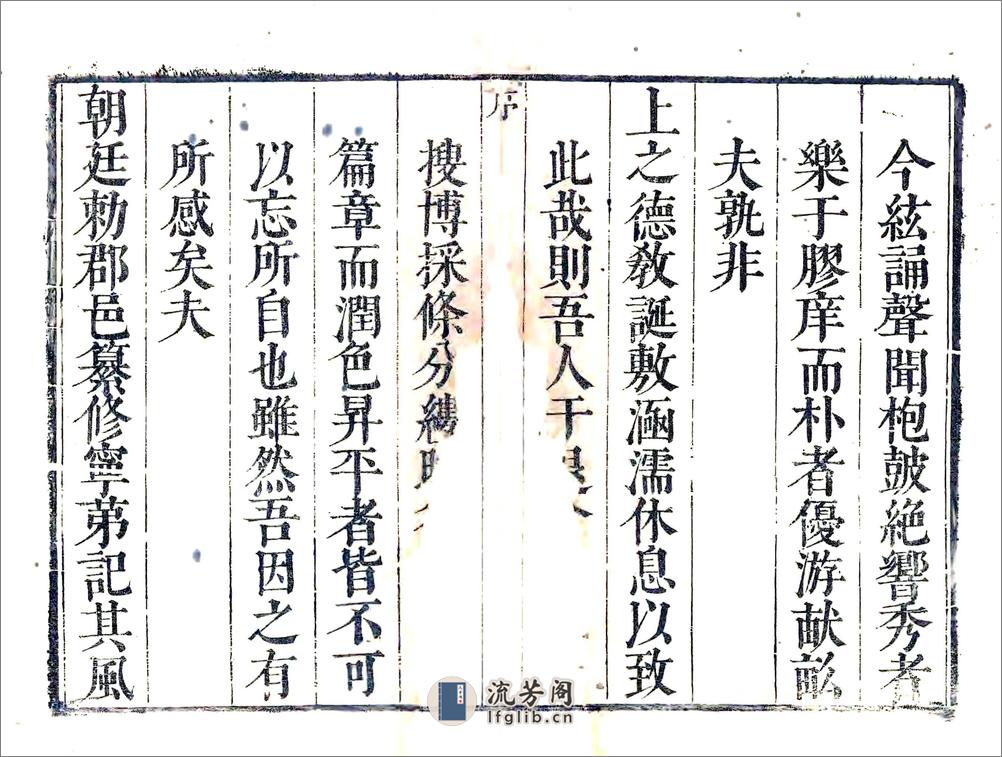 今絃誦聲聞枹皷絶響秀者
樂于膠庠而朴者優游献畝
夫孰非
上之德敎誕敷涵濡休息以致
此哉則吾人于
序
搜博採條分縷
篇章而潤色昇平者皆不可
以忘所自也雖然吾因之有
所感矣夫
朝廷勅郡邑纂修寧第記其風
流芳阁
lfglib.cn